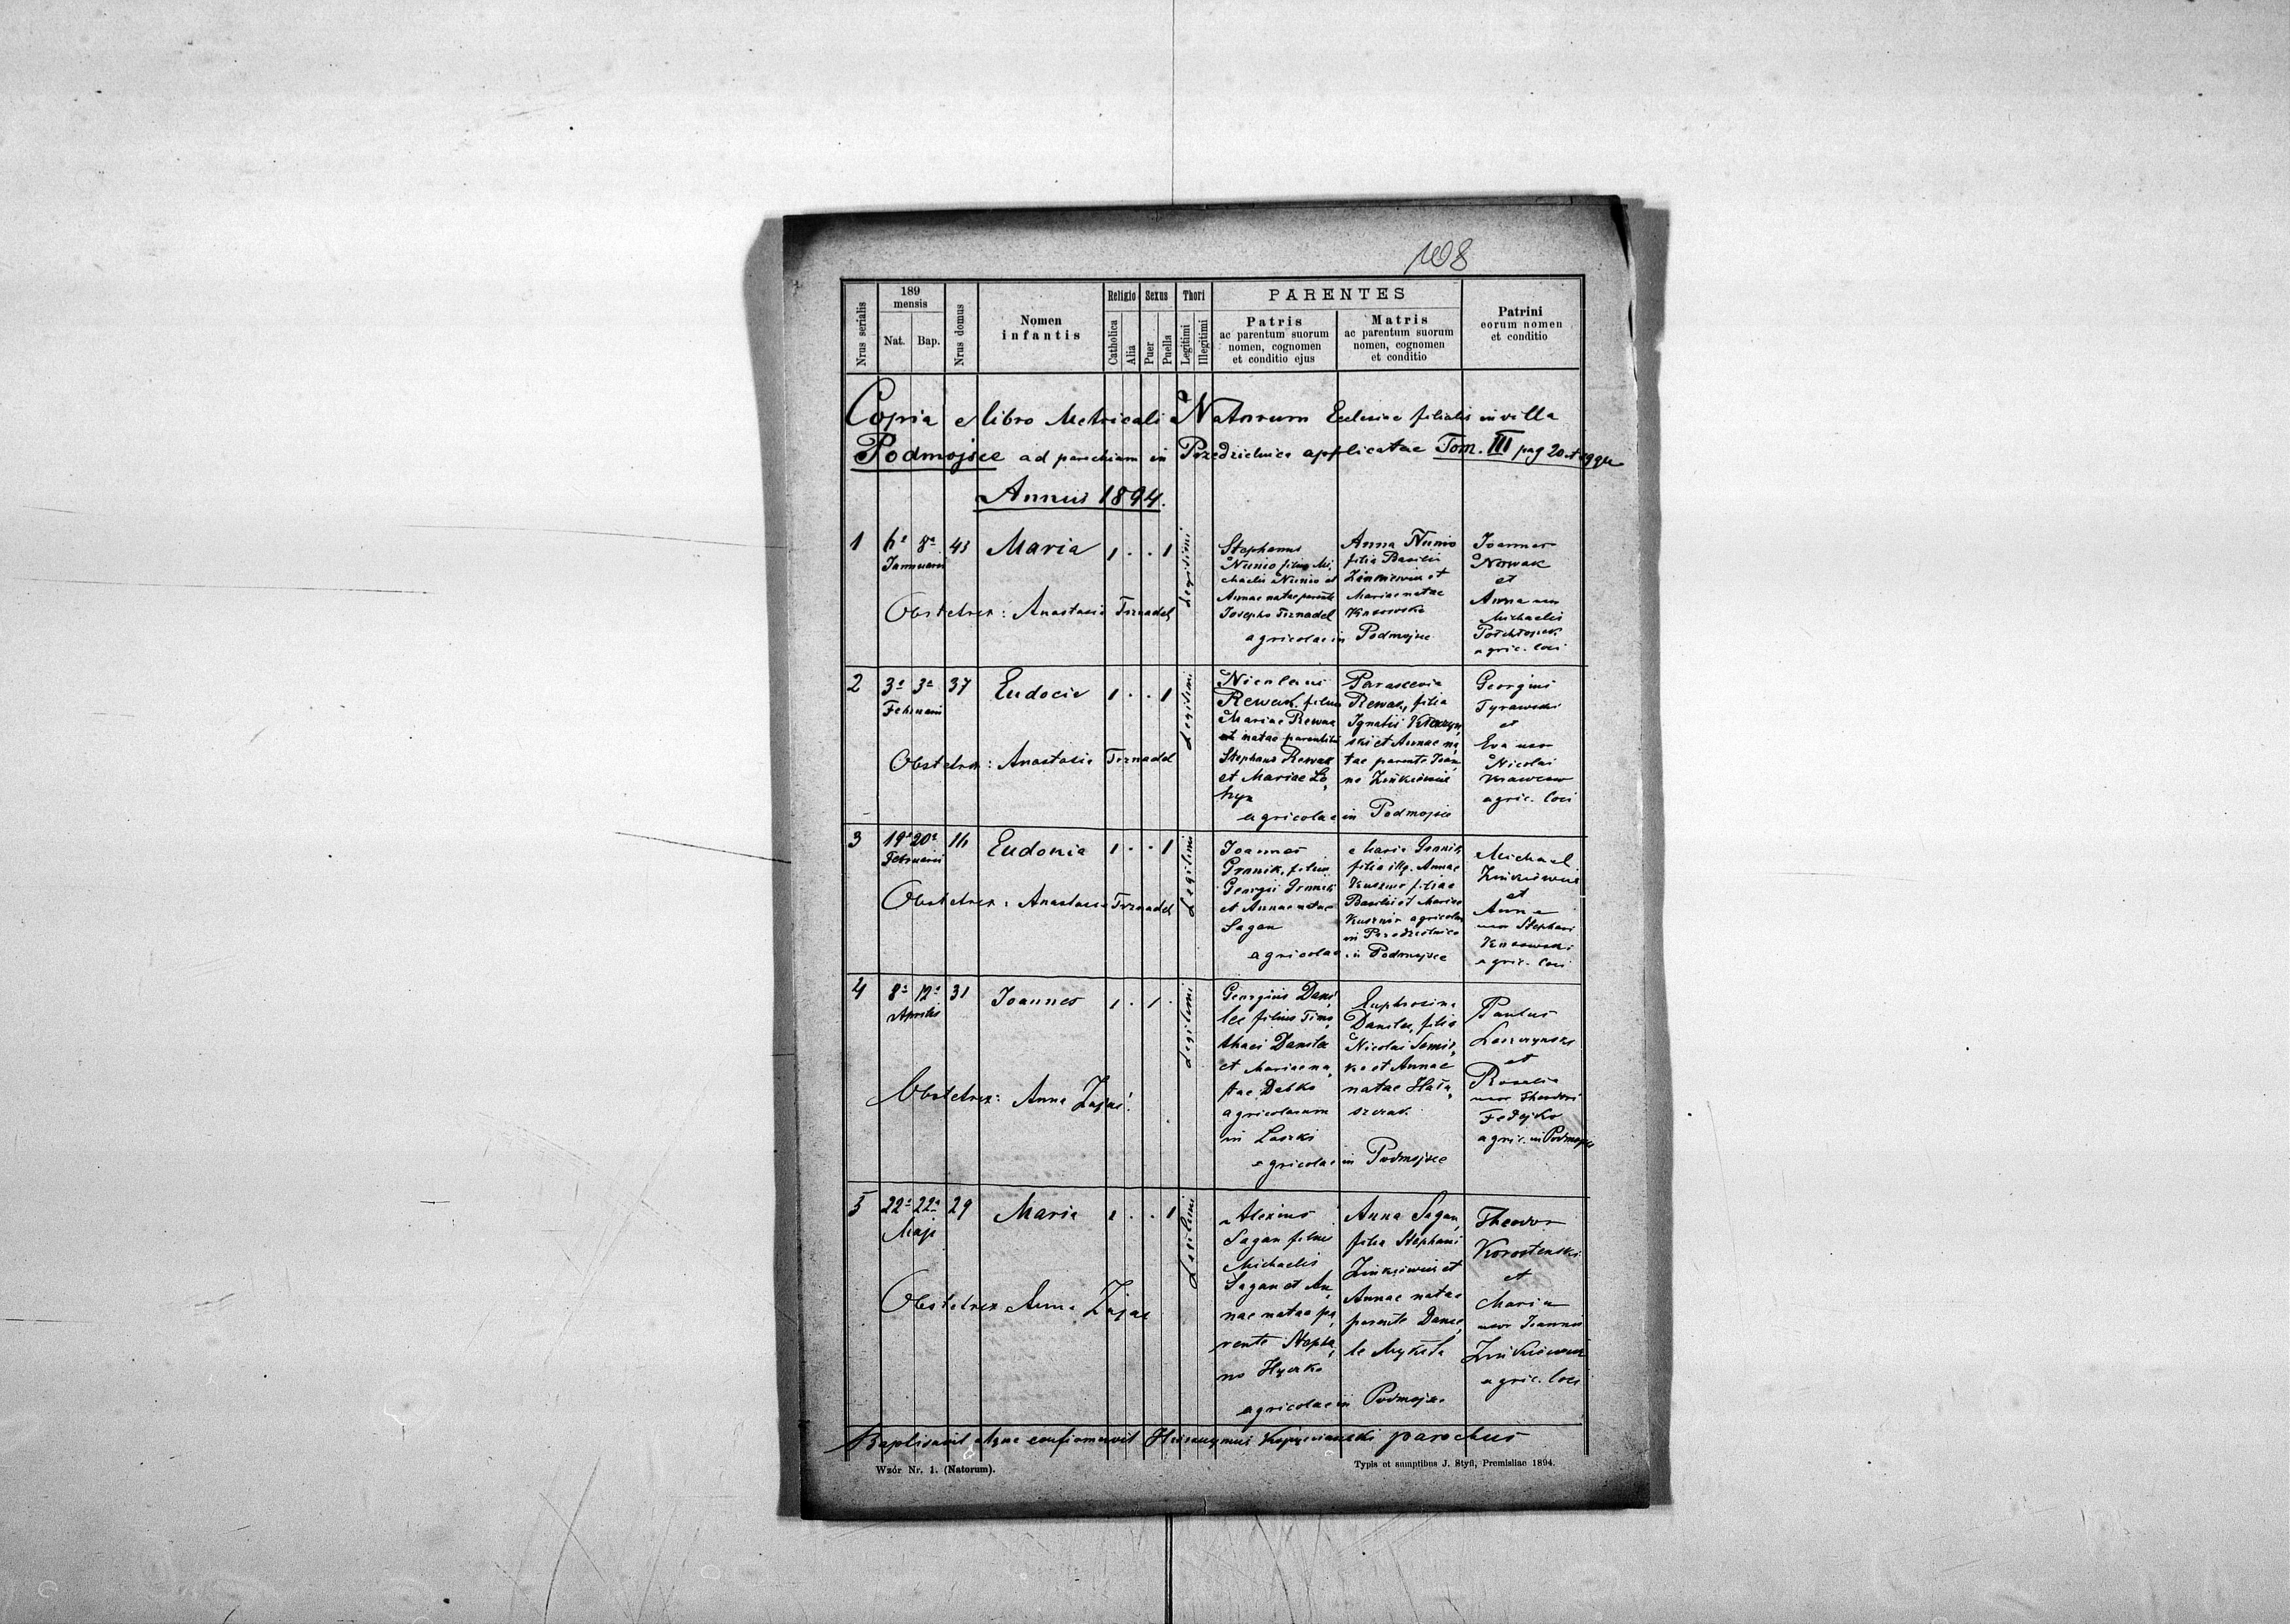 108
Nrus serialis
189
mensis
Nat.
Bap.
Nrus domus
Nomen
infantis
Religio
Catholica
Alia
Sexus
Puer
Puella
Thori
Legitimi
Illegitimi
PARENTES
Patris
ac parentum suorum
nomen, cognomen
et conditio ejus
Matris
ac parentum suorum
nomen, cognomen
et conditio
Patrini
eorum nomen
et conditio
Copia e libro Metricali Natorum Ecclesiae filialis in villa
Podmojsce ad parochiam in Przedzielnica applicatae Tom. III pag 20
Annus 1894.
1
8a
43
Maria
1 . . 1
Januarii
Legitimi
Obstetrix: Anastasia Tyrnadel
Stephanus
Nunio filius Mi,
chaelis Nunio et
Annae natae parente
Josepho Tyrnadel
Anna Nunio
filia Basilii
Zinkiewicz et
Mariae natae
agricolae in Podmojsce
Joannes
Nowak
et
Anna uxor
Michaelis
agric. loci
2
3a 3a
37
Eudocia
1 . . 1
Februarii
Legitimi
Obstetrix: Anastasia Tyrnadel
Nicolaus
Rewak, filius
Mariae Rewak
natae parentibus
Stephano Rewak
et Mariae Lo,
Parascevia
Rewak, filia
Ignatii
ski et Annae na,
tae parente Joan,
ne Zinkiewicz
agricolae in Podmojsce
Georgius
Tyrawski
et
Eva uxor
Nicolai
Krawców
agric. loci
3
19a 20a
16
Eudonia
1 . . 1
Februarii
Legitimi
Obstetrix: Anastasia Tyrnadel
Joannes
filius
Georgii
et Annae natae
Sagan
Maria
filia illg. Annae
Kusznir filiae
Basilii et Mariae
Kusznir agricolae
in Przedzielnica
agricolae in Podmojsce
Michael
Zinkiewicz
et
Anna
uxor Stephani
agric. loci
4
8a 12a
31
Joannes
1 . 1 .
Aprilis
Legitimi
Obstetrix: Anna Zając.
Georgius Dani,
lec filius Timo,
thaei Danilec
et Mariae na,
tae Dabko
agricolarum
in Laszki
Euphrosina
Danilec, filia
Nicolai
ko et Annae
natae
agricolae in Podmojsce
Paulus
Leszczynski
et
Rosalia
uxor Theodori
Fedejko
agric. in Podmojsce
5
22a 22a
29
Maria
1 . . 1
Maji
Legitimi
Obstetrix Anna Zając
Alexius
Sagan filius
Michaelis
Sagan et An,
nae natae pa,
rente Stepha,
no Hycko
Anna Sagan,
filia Stephani
Zinkiewicz et
Annae natae
parente Danie,
le Mykita
agricolae in Podmojsce
Theodor
Korostenski
et
Maria
uxor Joannis
Zinkiewicz
agric. loci
Baptisavit atque confirmavit Hieronymus parochus
Wzór Nr. 1. (Natorum).
Typis et sumptibus J. Styfi, Premisliae 1894.